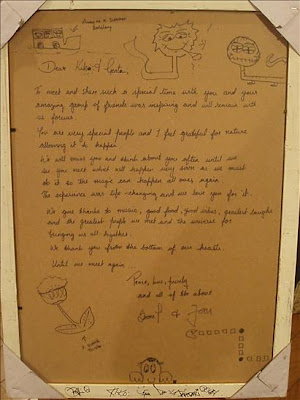 Dear Kiko &
To meet and share such a special time with you and your
amazing group of friends was inspiring and will remain with
us forever.
You are very special people and I feel grateful for nature
allowing it to happen
We will miss you and think about you often until we
see you next which will happen very soon as we must
do it so the magic can happen all over again.
The experience was life-changing and we love you for it.
We give thanks to music, good food, good vibes, greatest laughs
and the greatest people we met and the universe for
bringing us all together.
We thank you from the bottom of our hearts.
Until we meet again
Peace, love,
and all of the above
&